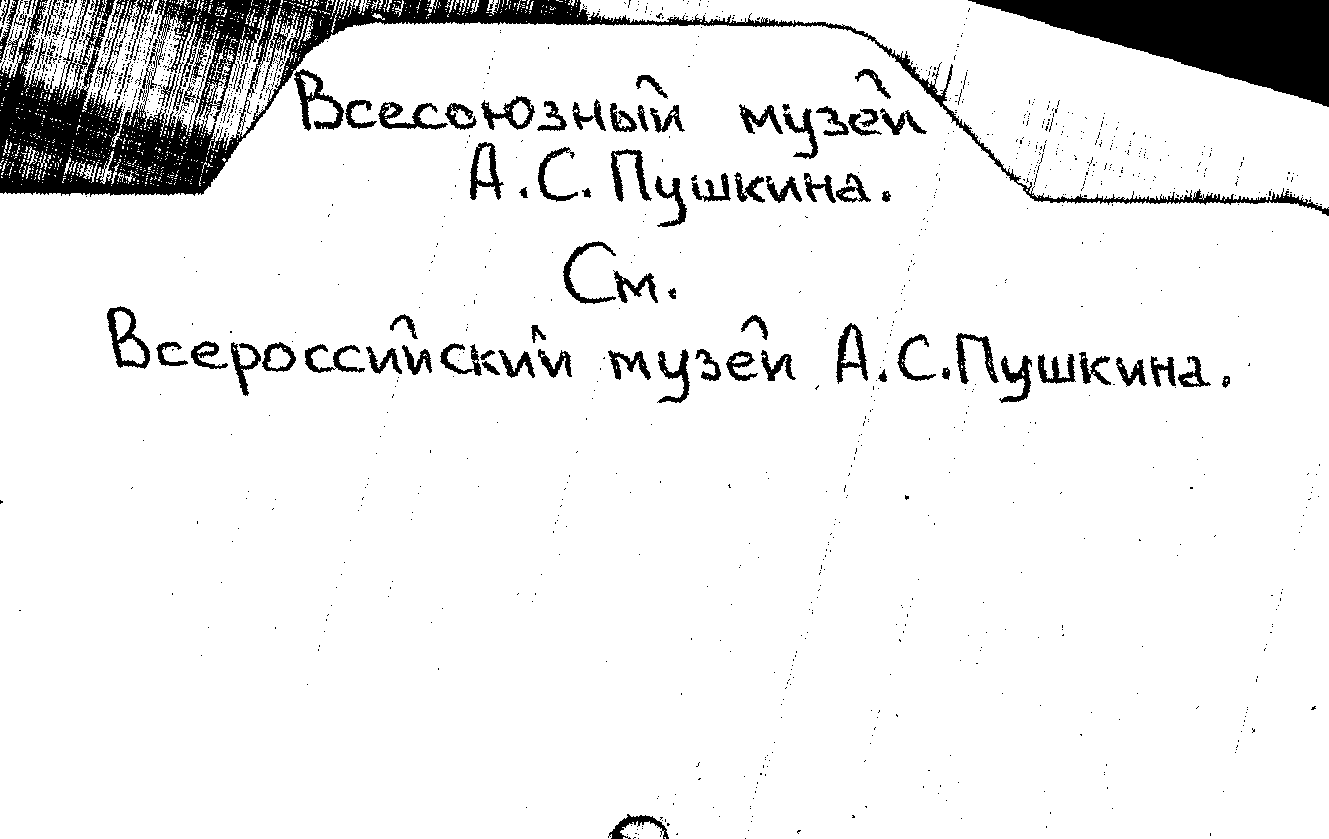 Всесоюзный музей
А.С. Пушкина.
См.
Всероссийский музей А.С.Пушкина.